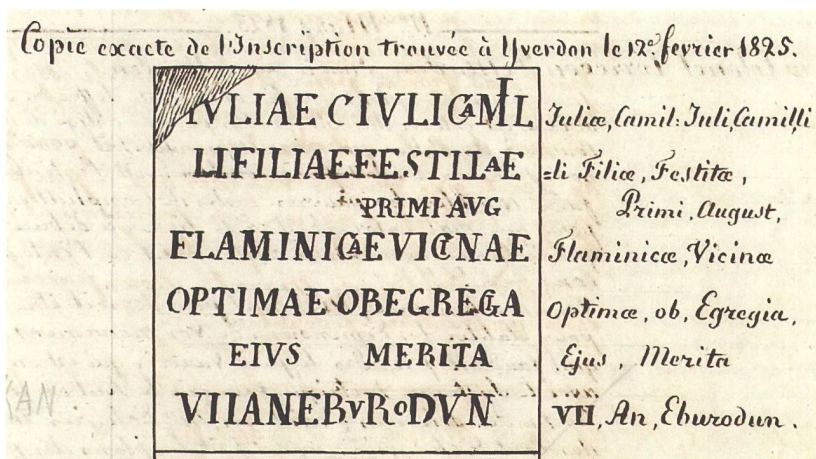 Copie exacte de l'Inscription trouvée à Yverdon le 12e. fevrier 1825.
IVLIAE CIVLICAMIL
LIFILIAEFESTILAE
PRIMIAVG
FLAMINICAEVICINAE
OPTIMAE OBEGREGIA
EIVS MERITA
VIIANEBVRODVN
Juliæ, Camil: Juli, Camilli
=li Filiæ, Festitæ,
Primi, August,
Flaminicæ, Vicinæ
Optimæ, ob, Egregia,
Ejus, Merita
VII, An, Eburodun.